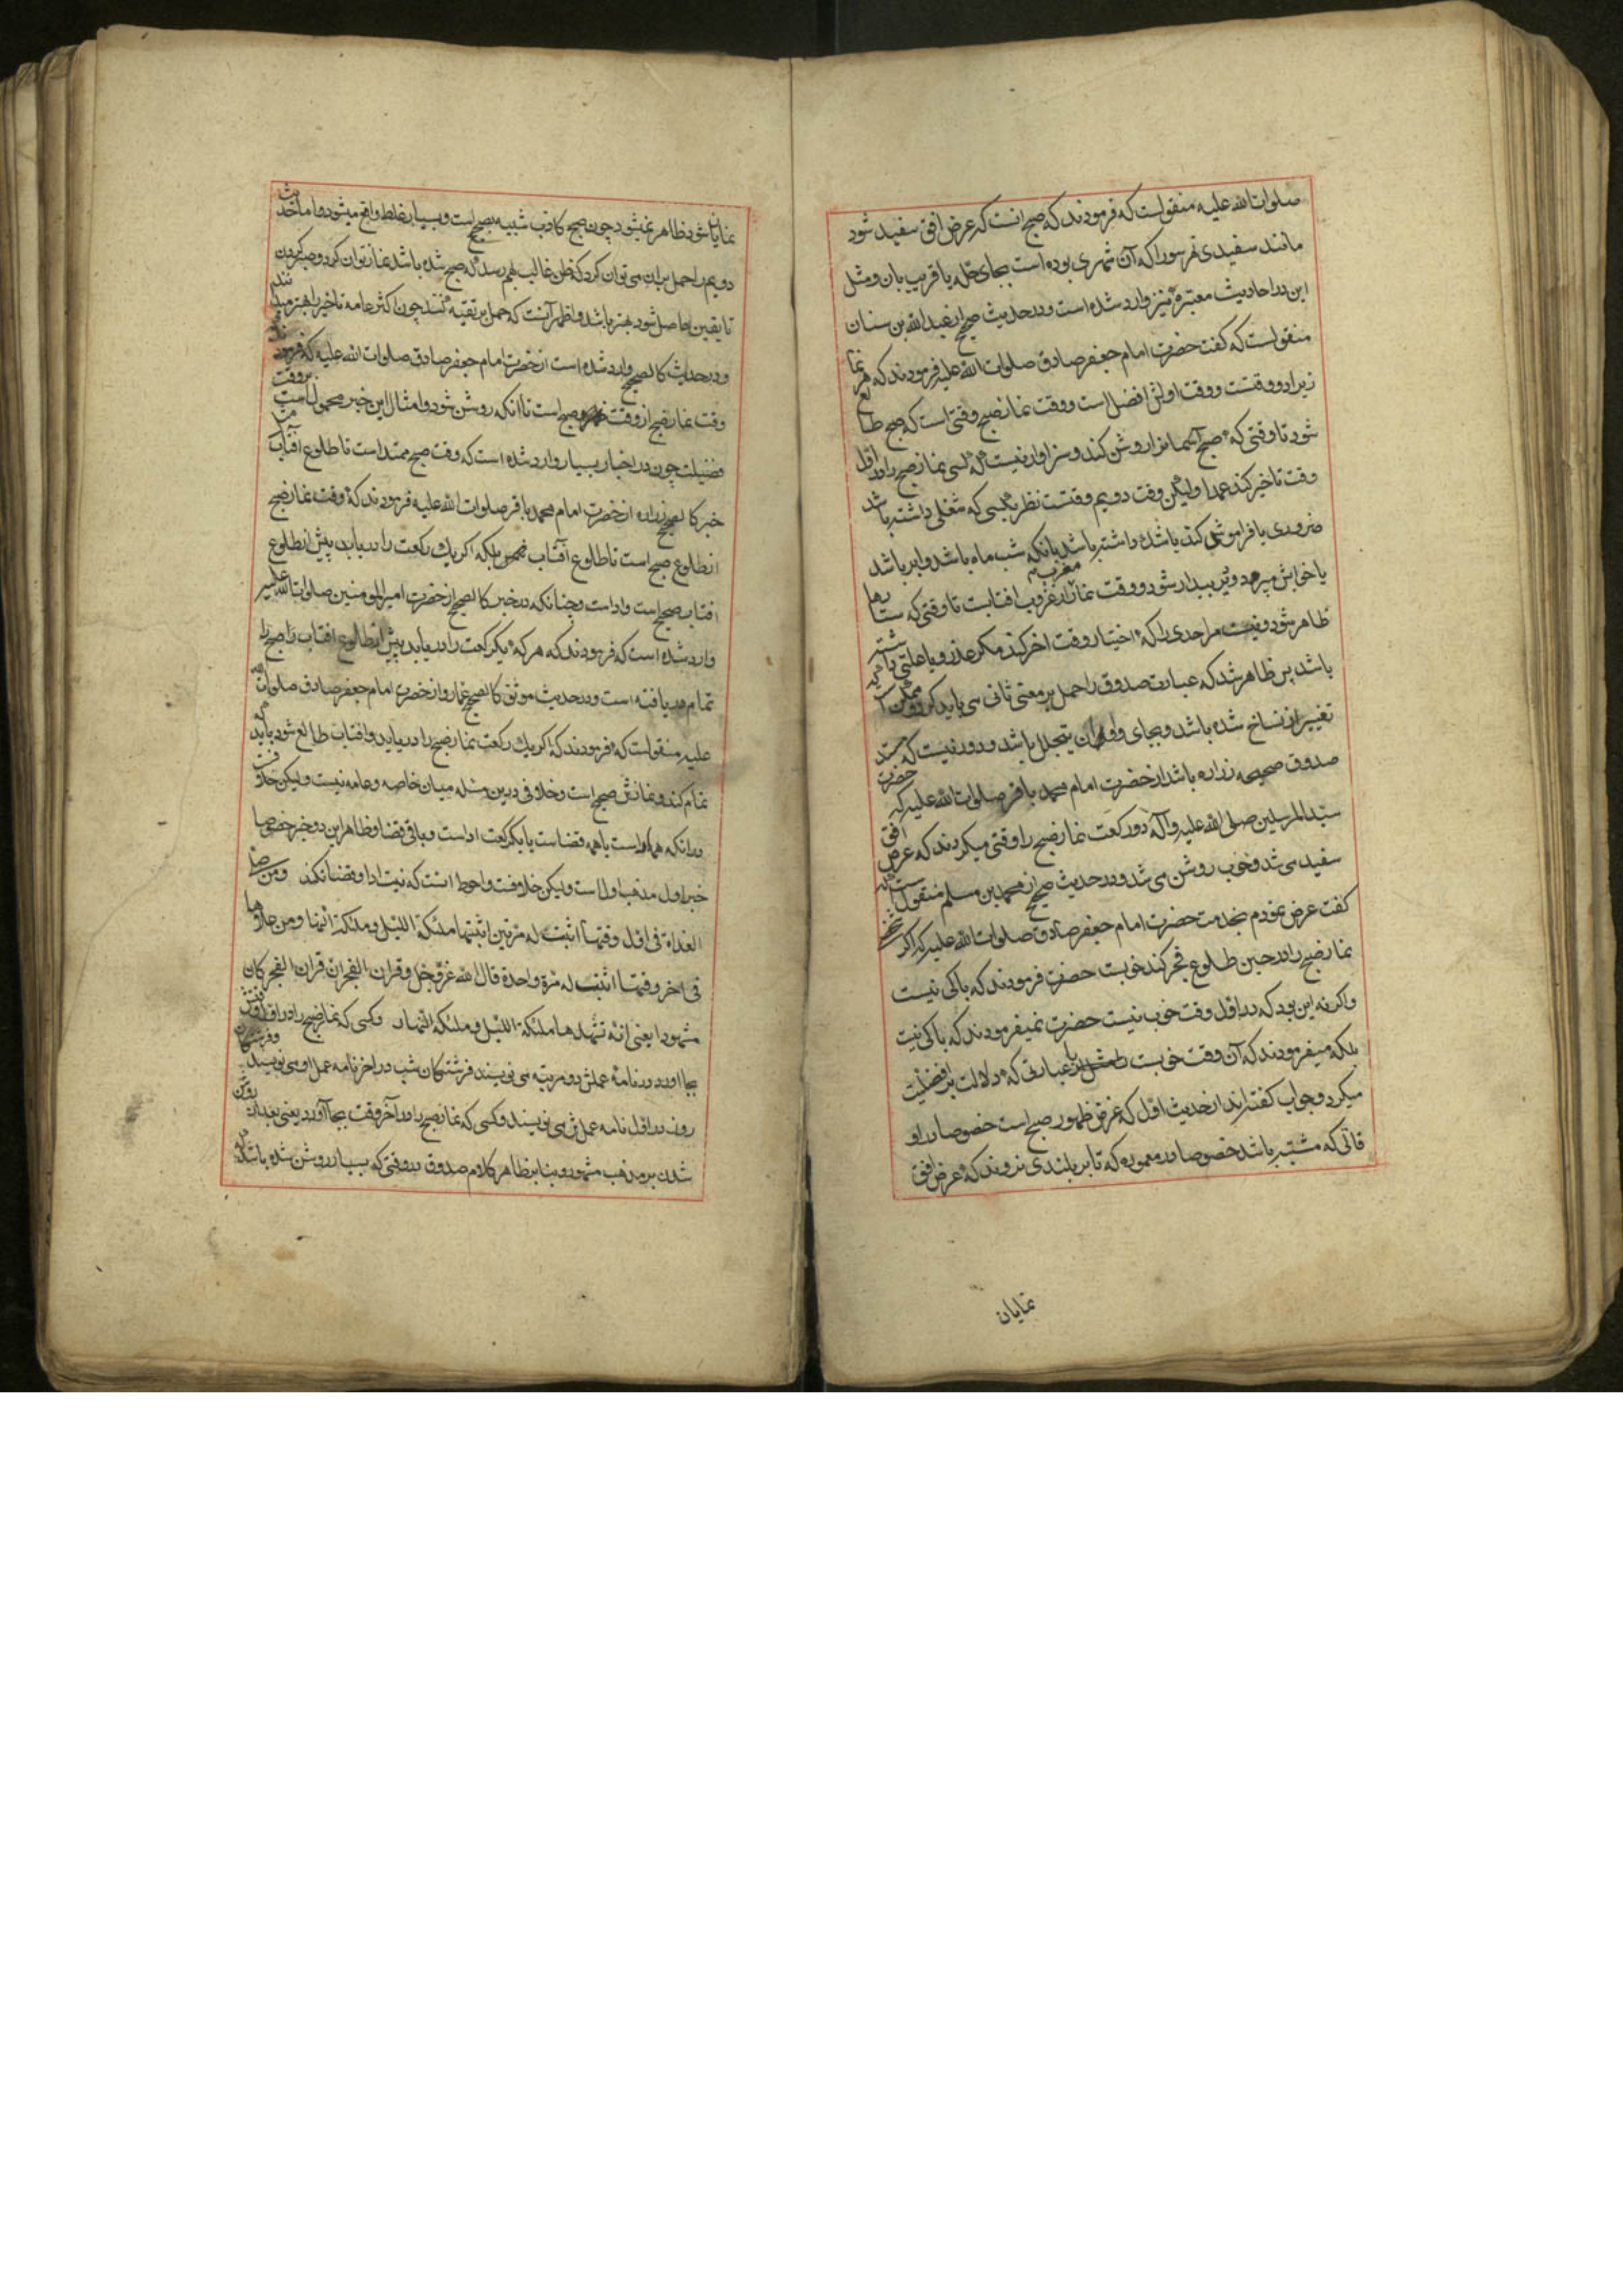 صلوات الله علیه منقولست که فرمودند که صبح انست که عرض افق سفید شود
مانند سفیدی نهر سورا که آن شهری بوده است بجای حله یا قریب بان و مثل
این در احادیث معتبره نیز وارد شده است و در حدیث صحیح از عبد الله بن سنان
منقولست که گفت حضرت امام جعفر صادق صلوات الله علیه فرمودند که هر نما
زیرا دو وقتست و وقت اولش افضل است و وقت نماز صبح وقتی است که صبح طالع
شود تا وقتی که صبح آسمانرا روشن کند و سزاوار نیست که کسی نماز صبح را از اول
وقت تاخیر کند عمدا ولیکن وقت دویم وقتست نظر بکسی که شغلی داشته باشد
ضروری یا فراموش کند یا شب ماه باشد و ابر باشد
یا خوابش میبرد و دیر بیدار شود و وقت نماز مغرب از غروب افتابست تا وقتی که ستارها
ظاهر شود و نیست مر احدی را که اختیار وقت اخر کند مگر عذر و یا علتی داشته
باشد پس ظاهر شد که عبارت صدوق را حمل بر معنی ثانی می باید کرد و ممکن است که
تغییر از نساخ شده باشد و بجای و ان یتجلل باشد و دور نیست که سند
صدوق صحیحه زراره باشد از حضرت امام محمد باقر صلوات الله علیه که حضرت
سید المرسلین صلی الله علیه و آله دو رکعت نماز صبح را وقتی میکردند که عرض افق
سفید می شد و خوب روشن می شد و در حدیث صحیح از محمد بن مسلم منقول است که
گفت عرض نمودم بخدمت حضرت امام جعفر صادق صلوات الله علیه که اگر شخصی
نماز صبح را در حین طلوع فجر کند خوبست حضرت فرمودند که باکی نیست
و اگر نه این بود که در اول وقت خوب نیست حضرت نمیفرمودند که باکی نیست
بلکه میفرمودند که آن وقت خوبست یا عبارتی که دلالت بر افضلیت
میکرد و جواب گفته اند از حدیث اول که غرض ظهور صبح است خصوصا در او
قاتی که مشتبه باشد خصوصا در معموره که تا بر بلندی نروند که عرض افق
نمایان
نمایان شود ظاهر نمیشود چون صبح کاذب شبیه بصبح است و بسیار غلط واقع میشود و اما حدیث
دویم را حمل بران می توان کرد که ظن غالب بهم رسد که صبح شده باشد نماز توان کرد و صبر کردن
تا یقین حاصل شود بهتر باشد و اظهر آنست که حمل بر تقیه کنند چون اکثر عامه تاخیر را بهتر میدانند
و در حدیث کالصحیح وارد شده است از حضرت امام جعفر صادق صلوات الله علیه که فرمودند
وقت نماز صبح از وقت صبح است تا انکه روشن شود و امثال این خبر محمول است بر وقت
فضیلت چون در اخبار بسیار وارد شده است که وقت صبح ممتد است تا طلوع آفتاب مثل
خبر کالصحیح زراره از حضرت امام محمد باقر صلوات الله علیه فرمودند که وقت نماز صبح
از طلوع صبح است تا طلوع آفتاب بلکه اگر یک رکعت را دریابد پیش از طلوع
افتاب صحیح است و اداست و چنانکه در خبر کالصحیح از حضرت امیر المومنین صلوات الله علیه
وارد شده است که فرمودند که هر که یکرکعت را دریابد پیش از طلوع افتاب صبح را
تمام دریافته است و در حدیث موثق کالصحیح عمار و از حضرت امام جعفر صادق صلوات الله
علیه منقولست که فرمودند که اگر یک رکعت نماز صبح را دریابد و افتاب طالع شود باید که
تمام کند و نمازش صحیح است و خلافی در این مسئله میان خاصه و عامه نیست ولیکن خلافست
در انکه همه اداست یا همه قضاست یا یکرکعت اداست و باقی قضا و ظاهر این دو خبر خصوصا
خبر اول مذهب اولست ولیکن خلافست و احوط انست که نیت ادا و قضا نکند ومن صلی
الغداة فی اول وقتها اثبتت له مرتین اثبتها ملئکة اللیل و ملئکة النهار ومن صلاها
فی اخر وقتها اثبتت له مرة واحدة قال الله عز و جل و قران الفجر ان قران الفجر کان
مشهودا یعنی انه تشهدها ملئکة اللیل و ملئکة النهار و کسی که نماز صبح را در اول وقتش
بجا اورد در نامهٔ عملش دو مرتبه می نویسند فرشتگان شب در اخر نامه عمل او می نویسند و فرشتگان
روز در اول نامه عملش می نویسند و کسی که نماز صبح را در آخر وقت بجا آورد یعنی بعد از روشن
شدن بر مذهب مشهور و بنابر ظاهر کلام صدوق در وقتی که بسیار روشن شده باشد که